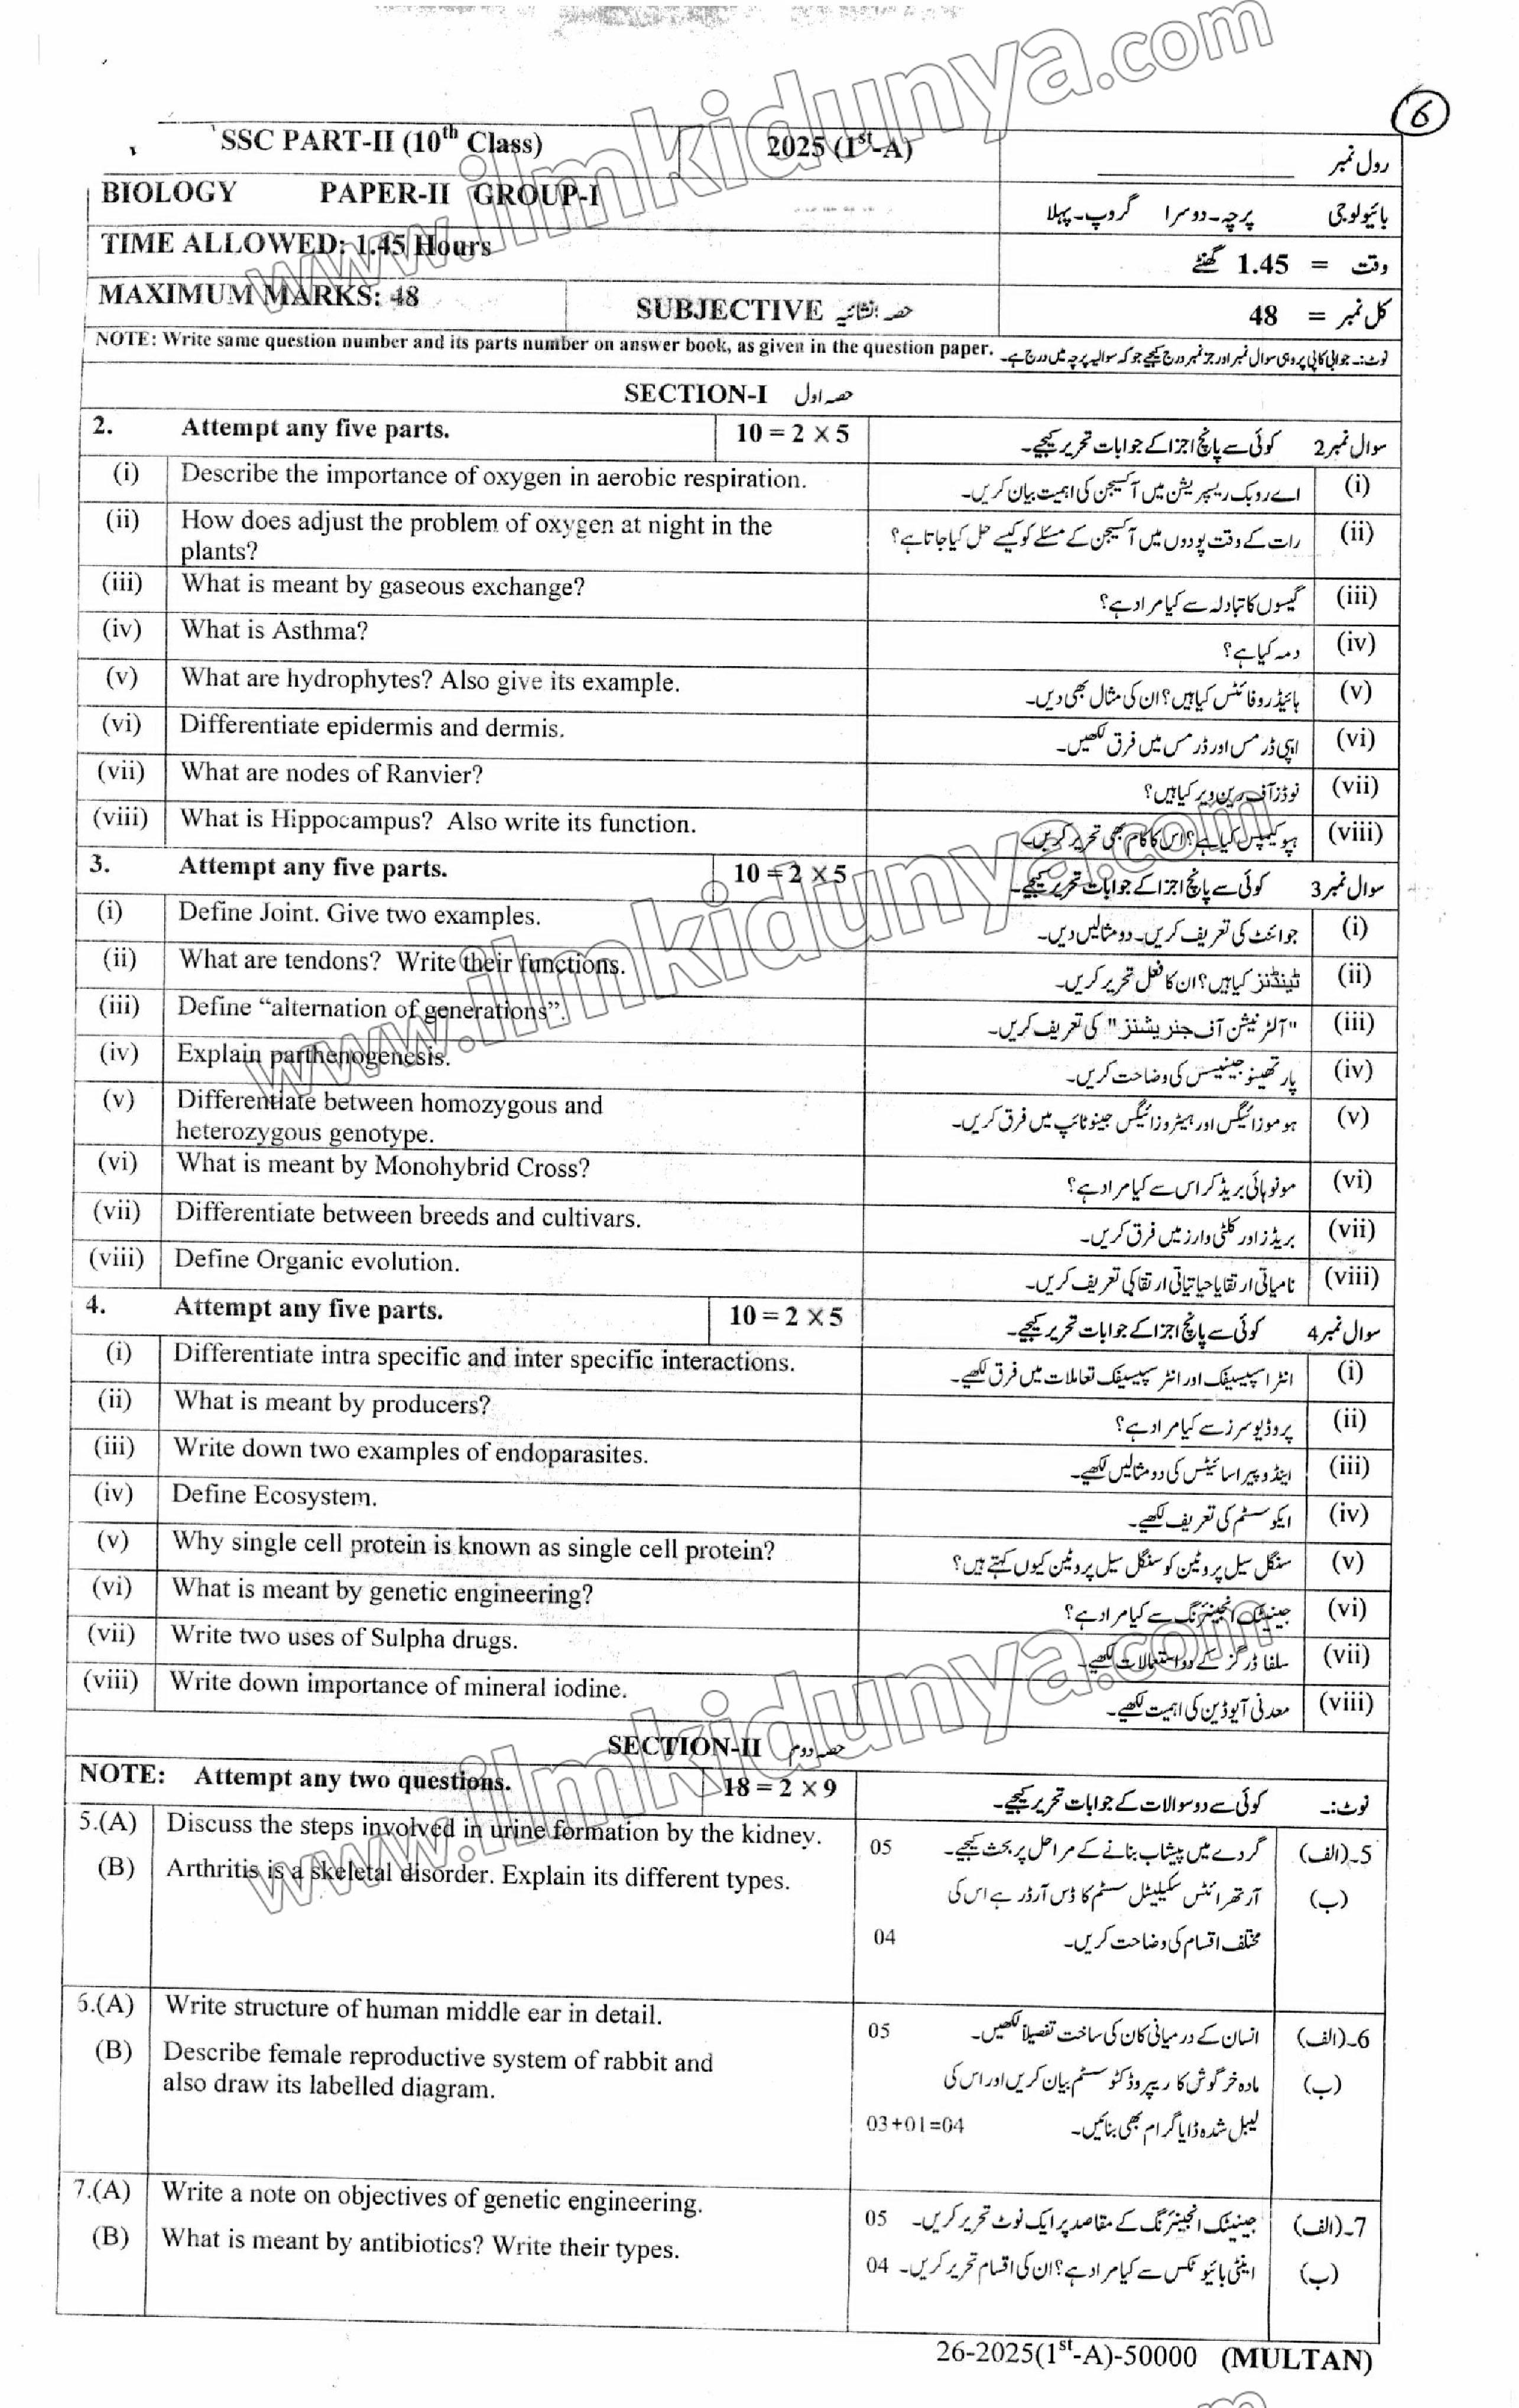 www.ilmkidunya.com
6
SSC PART-II (10th Class) 2025 (1st-A) رول نمبر ____________
BIOLOGY PAPER-II GROUP-I بائیولوجی پرچہ۔دوسرا گروپ۔پہلا
TIME ALLOWED: 1.45 Hours وقت = 1.45 گھنٹے
MAXIMUM MARKS: 48 SUBJECTIVE حصہ انشائیہ کل نمبر = 48
NOTE: Write same question number and its parts number on answer book, as given in the question paper. نوٹ:۔ جوابی کاپی پر وہی سوال نمبر اور جز نمبر درج کیجیے جو کہ سوالیہ پرچہ میں درج ہے۔
SECTION-I حصہ اول
2. Attempt any five parts. 10 = 2 × 5 سوال نمبر 2 کوئی سے پانچ اجزا کے جوابات تحریر کیجیے۔
(i) Describe the importance of oxygen in aerobic respiration. اے روبک ریسپریشن میں آکسیجن کی اہمیت بیان کریں۔ (i)
(ii) How does adjust the problem of oxygen at night in the رات کے وقت پودوں میں آکسیجن کے مسئلے کو کیسے حل کیا جاتا ہے؟ (ii)
plants?
(iii) What is meant by gaseous exchange? گیسوں کا تبادلہ سے کیا مراد ہے؟ (iii)
(iv) What is Asthma? دمہ کیا ہے؟ (iv)
(v) What are hydrophytes? Also give its example. ہائیڈروفائٹس کیا ہیں؟ ان کی مثال بھی دیں۔ (v)
(vi) Differentiate epidermis and dermis. اپی ڈرمس اور ڈرمس میں فرق لکھیں۔ (vi)
(vii) What are nodes of Ranvier? نوڈز آف رین ویر کیا ہیں؟ (vii)
(viii) What is Hippocampus? Also write its function. ہپوکیمپس کیا ہے؟ اس کا کام بھی تحریر کریں۔ (viii)
3. Attempt any five parts. 10 = 2 × 5 سوال نمبر 3 کوئی سے پانچ اجزا کے جوابات تحریر کیجیے۔
(i) Define Joint. Give two examples. جوائنٹ کی تعریف کریں۔ دو مثالیں دیں۔ (i)
(ii) What are tendons? Write their functions. ٹینڈنز کیا ہیں؟ ان کا فعل تحریر کریں۔ (ii)
(iii) Define “alternation of generations”. "آلٹرنیشن آف جنریشنز" کی تعریف کریں۔ (iii)
(iv) Explain parthenogenesis. پارتھینوجینیسس کی وضاحت کریں۔ (iv)
(v) Differentiate between homozygous and ہوموزائیگس اور ہیٹروزائیگس جینوٹائپ میں فرق کریں۔ (v)
heterozygous genotype.
(vi) What is meant by Monohybrid Cross? مونوہائی برڈ کراس سے کیا مراد ہے؟ (vi)
(vii) Differentiate between breeds and cultivars. بریڈز اور کلٹی وارز میں فرق کریں۔ (vii)
(viii) Define Organic evolution. نامیاتی ارتقا یا حیاتیاتی ارتقا کی تعریف کریں۔ (viii)
4. Attempt any five parts. 10 = 2 × 5 سوال نمبر 4 کوئی سے پانچ اجزا کے جوابات تحریر کیجیے۔
(i) Differentiate intra specific and inter specific interactions. انٹرا سپیسیفک اور انٹر سپیسیفک تعاملات میں فرق لکھیے۔ (i)
(ii) What is meant by producers? پروڈیوسرز سے کیا مراد ہے؟ (ii)
(iii) Write down two examples of endoparasites. اینڈو پیراسائیٹس کی دو مثالیں لکھیے۔ (iii)
(iv) Define Ecosystem. ایکوسسٹم کی تعریف لکھیے۔ (iv)
(v) Why single cell protein is known as single cell protein? سنگل سیل پروٹین کو سنگل سیل پروٹین کیوں کہتے ہیں؟ (v)
(vi) What is meant by genetic engineering? جینیٹک انجینئرنگ سے کیا مراد ہے؟ (vi)
(vii) Write two uses of Sulpha drugs. سلفا ڈرگز کے دو استعمالات لکھیے۔ (vii)
(viii) Write down importance of mineral iodine. معدنی آیوڈین کی اہمیت لکھیے۔ (viii)
SECTION-II حصہ دوم
NOTE: Attempt any two questions. 18 = 2 × 9 نوٹ:۔ کوئی سے دو سوالات کے جوابات تحریر کیجیے۔
5.(A) Discuss the steps involved in urine formation by the kidney. 05 گردے میں پیشاب بنانے کے مراحل پر بحث کیجیے۔ 5۔(الف)
(B) Arthritis is a skeletal disorder. Explain its different types. آرتھرائٹس سکیلیٹل سسٹم کا ڈس آرڈر ہے اس کی (ب)
04 مختلف اقسام کی وضاحت کریں۔
6.(A) Write structure of human middle ear in detail. 05 انسان کے درمیانی کان کی ساخت تفصیلاً لکھیں۔ 6۔(الف)
(B) Describe female reproductive system of rabbit and مادہ خرگوش کا ریپروڈکٹو سسٹم بیان کریں اور اس کی (ب)
also draw its labelled diagram. 03+01=04 لیبل شدہ ڈایاگرام بھی بنائیں۔
7.(A) Write a note on objectives of genetic engineering. 05 جینیٹک انجینئرنگ کے مقاصد پر ایک نوٹ تحریر کریں۔ 7۔(الف)
(B) What is meant by antibiotics? Write their types. 04 اینٹی بائیوٹکس سے کیا مراد ہے؟ ان کی اقسام تحریر کریں۔ (ب)
26-2025(1st-A)-50000 (MULTAN)
www.ilmkidunya.com
www.ilmkidunya.com